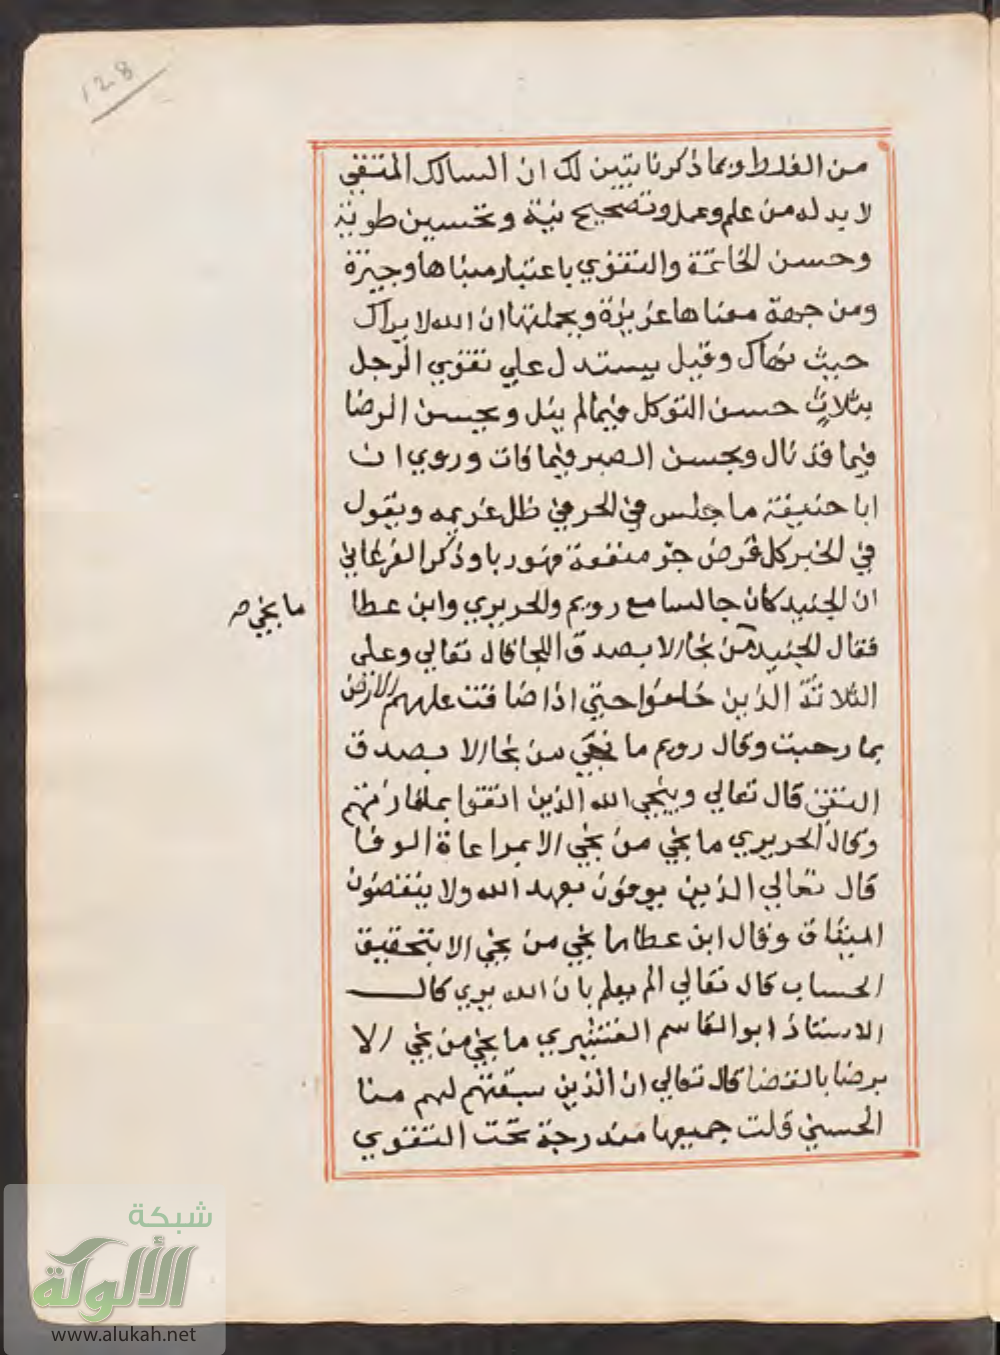 128
من الغلط وبما ذكرنا يتبين لك ان السالك المتقي
لا بد له من علم وعمل وتصحيح نية وتحسين طوية
وحسن الخاتمة والتقوي باعتبار مبناها وجيزة
ومن جهة معناها عزيزة وبجملتها ان الله لا يراك
حيث نهاك وقيل يستدل علي تقوي الرجل
بثلاث حسن التوكل فيما لم ينل وبحسن الرضا
فيما قد نال وبحسن الصبر فيما فات وروي ان
ابا حنيفة ما جلس في الحر في ظل غريمه ويقول
في الخبر كل قرض جر منفعة فهو ربا وذكر الفرغاني
ان الجنيد كان جالسا مع رويم والحريري وابن عطا
ما نجي صح
فقال الجنيد من نجا الا بصدق اللجا قال تعالي وعلي
الثلاثة الذين خلفوا حتي اذا ضاقت عليهم الارض
بما رحبت وقال رويم ما نجي من نجا الا بصدق
التقي قال تعالي وينجي الله الذين اتقوا بمفازتهم
وقال الحريري ما نجي من نجي الا بمراعاة الوفا
قال تعالي الذين يوفون بعهد الله ولا ينقضون
الميثاق وقال ابن عطا ما نجي من نجي الا بتحقيق
الحساب قال تعالي الم يعلم بان الله يري قال
الاستاذ ابو القاسم القشيري ما نجي من نجي الا
برضا بالقضا قال تعالي ان الذين سبقت لهم منا
الحسني قلت جميعها مندرجة تحت التقوي
شبكة
الألوكة
www.alukah.net